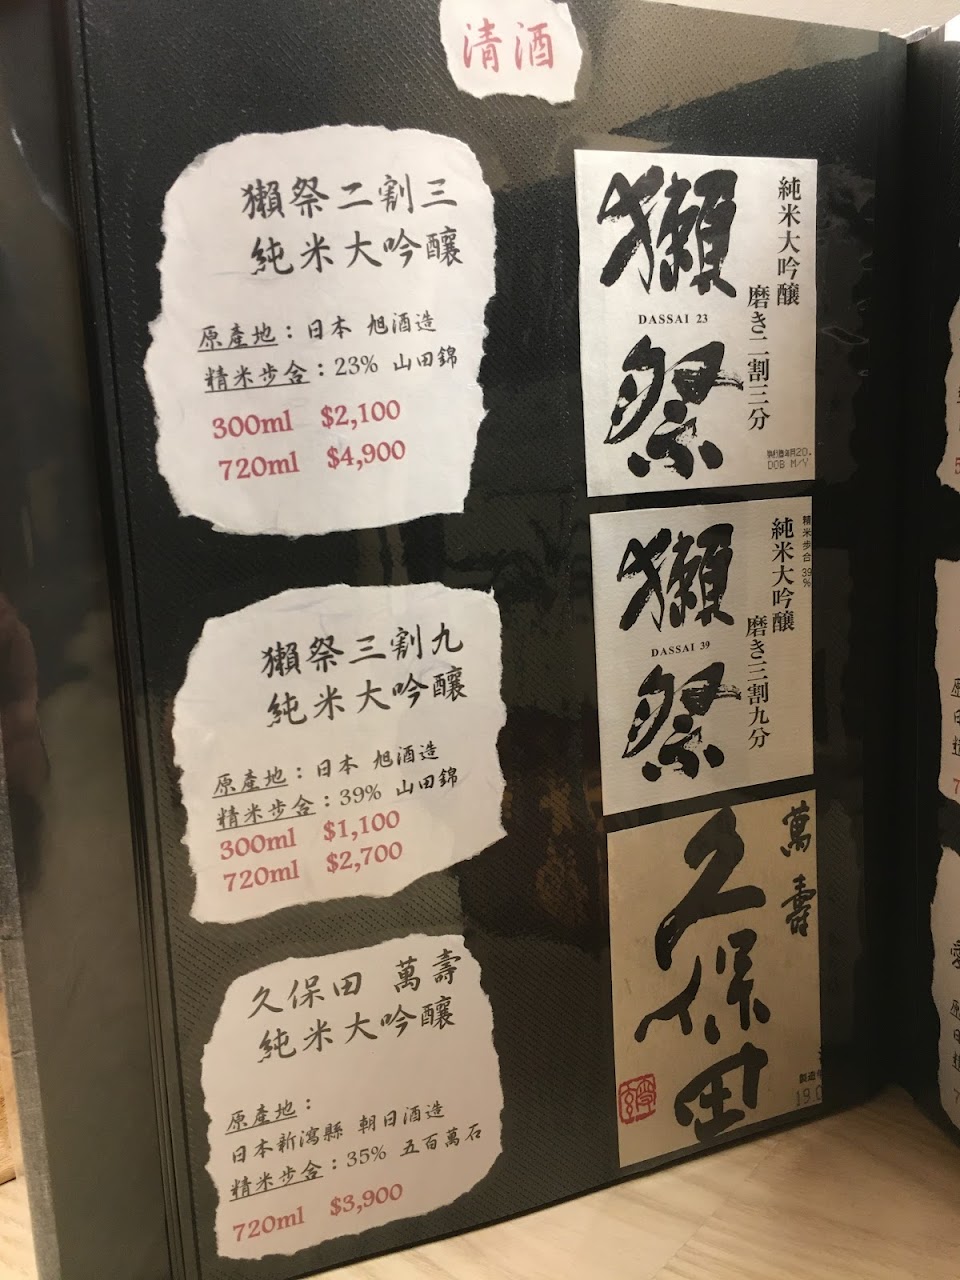 清酒
獺祭二割三
純米大吟釀
原產地：日本 旭酒造
精米步合：23% 山田錦
300ml $2,100
720ml $4,900
獺祭
DASSAI 23
純米大吟醸
磨き二割三分
DOB M/Y
獺祭三割九
純米大吟釀
原產地：日本 旭酒造
精米步合：39% 山田錦
300ml $1,100
720ml $2,700
獺祭
DASSAI 39
精米歩合 39%
純米大吟醸
磨き三割九分
久保田 萬壽
純米大吟釀
原產地：
日本新瀉縣 朝日酒造
精米步合：35% 五百萬石
720ml $3,900
萬壽
久保田
製造
19.0